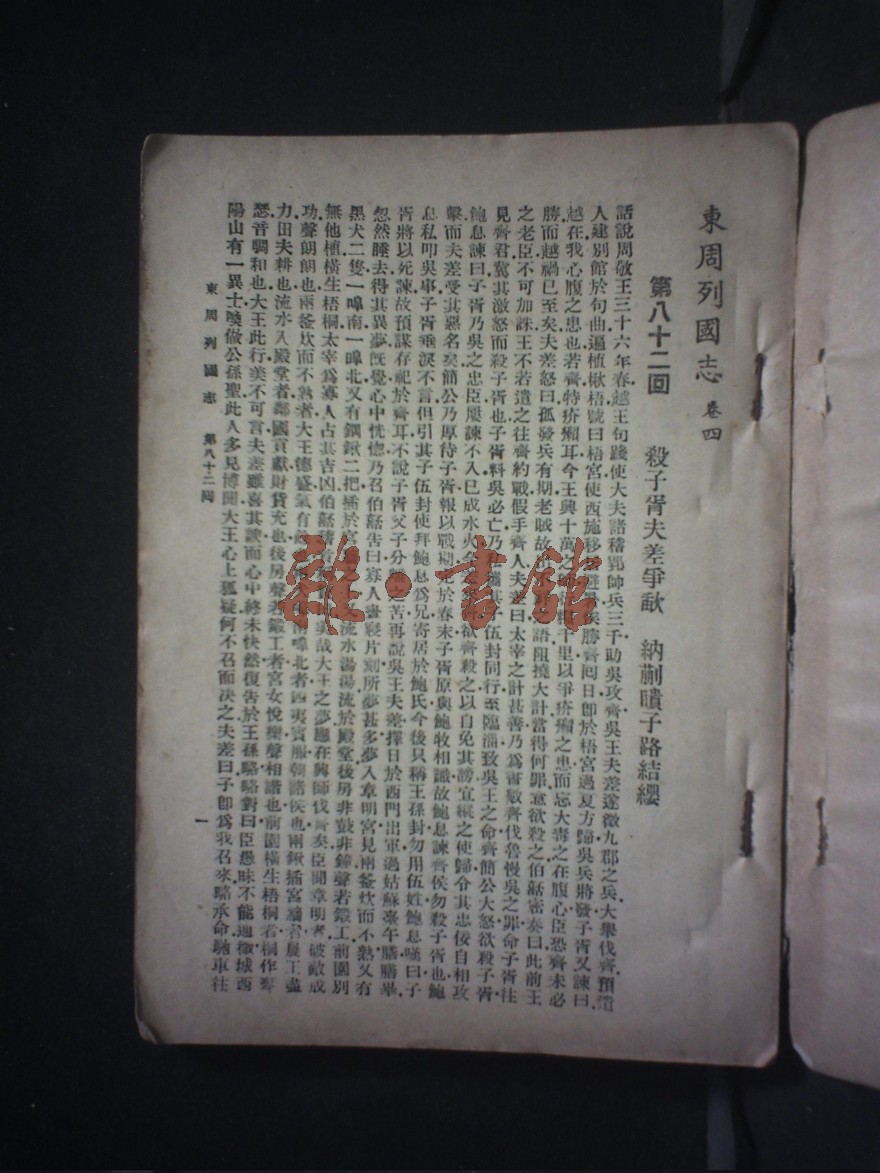 東周列國志 卷四
第八十二回 殺子胥夫差爭歃 納蒯聵子路結纓
話說周敬王三十六年春越王句踐使大夫諸稽郢帥兵三千助吳攻齊吳王夫差遂徵九郡之兵大舉伐齊預遣
人建別館於句曲遍植楸梧號曰梧宮使西施移居避暑俟勝齊囘日卽於梧宮過夏方歸吳兵將發子胥又諫曰
越在我心腹之患也若齊特疥癩耳今王興十萬之師行糧千里以爭疥癩之患而忘大毒之在腹心臣恐齊未必
勝而越禍已至矣夫差怒曰孤發兵有期老賊故出不語阻撓大計當得何罪意欲殺之伯嚭密奏曰此前王
之老臣不可加誅王不若遣之往齊約戰假手齊人夫差曰太宰之計甚善乃爲書數齊伐魯慢吳之罪命子胥往
見齊君冀其激怒而殺子胥也子胥料吳必亡乃私攜其子伍封同行至臨淄致吳王之命齊簡公大怒欲殺子胥
鮑息諫曰子胥乃吳之忠臣屢諫不入已成水火今遣來齊欲齊殺之以自免其謗宜縱之使歸令其忠佞自相攻
擊而夫差受其惡名矣簡公乃厚待子胥報以戰期定於春末子胥原與鮑牧相識故鮑息諫齊侯勿殺子胥也鮑
息私叩吳事子胥垂淚不言但引其子伍封使拜鮑息爲兄寄居於鮑氏今後只稱王孫封勿用伍姓鮑息嘆曰子
胥將以死諫故預謀存祀於齊耳不說子胥父子分離之苦再說吳王夫差擇日於西門出軍過姑蘇臺午膳膳畢
忽然睡去得其異夢旣覺心中恍惚乃召伯嚭告曰寡人晝寢片刻所夢甚多夢入章明宮見兩釜炊而不熟又有
黑犬二隻一嘷南一嘷北又有鋼鍬二把插於宮牆之上又流水湯湯流於殿堂後房非鼓非鐘聲若鍛工前園別
無他植橫生梧桐太宰爲寡人占其吉凶伯嚭稽首稱賀曰美哉大王之夢應在興師伐齊矣臣聞章明者破敵成
功聲朗朗也兩釜炊而不熟者大王德盛氣有餘也兩犬嘷南嘷北者四夷賓服朝諸侯也兩鍬插宮牆者農工盡
力田夫耕也流水入殿堂者鄰國貢獻財貨充也後房聲若鍛工者宮女悅樂聲相諧也前園橫生梧桐者桐作琴
瑟音調和也大王此行美不可言夫差雖喜其諛而心中終未快然復告於王孫駱駱對曰臣愚昧不能通微城西
陽山有一異士喚做公孫聖此人多見博聞大王心上狐疑何不召而決之夫差曰子卽爲我召來駱承命馳車往
東周列國志 第八十二囘
一
雜·書館